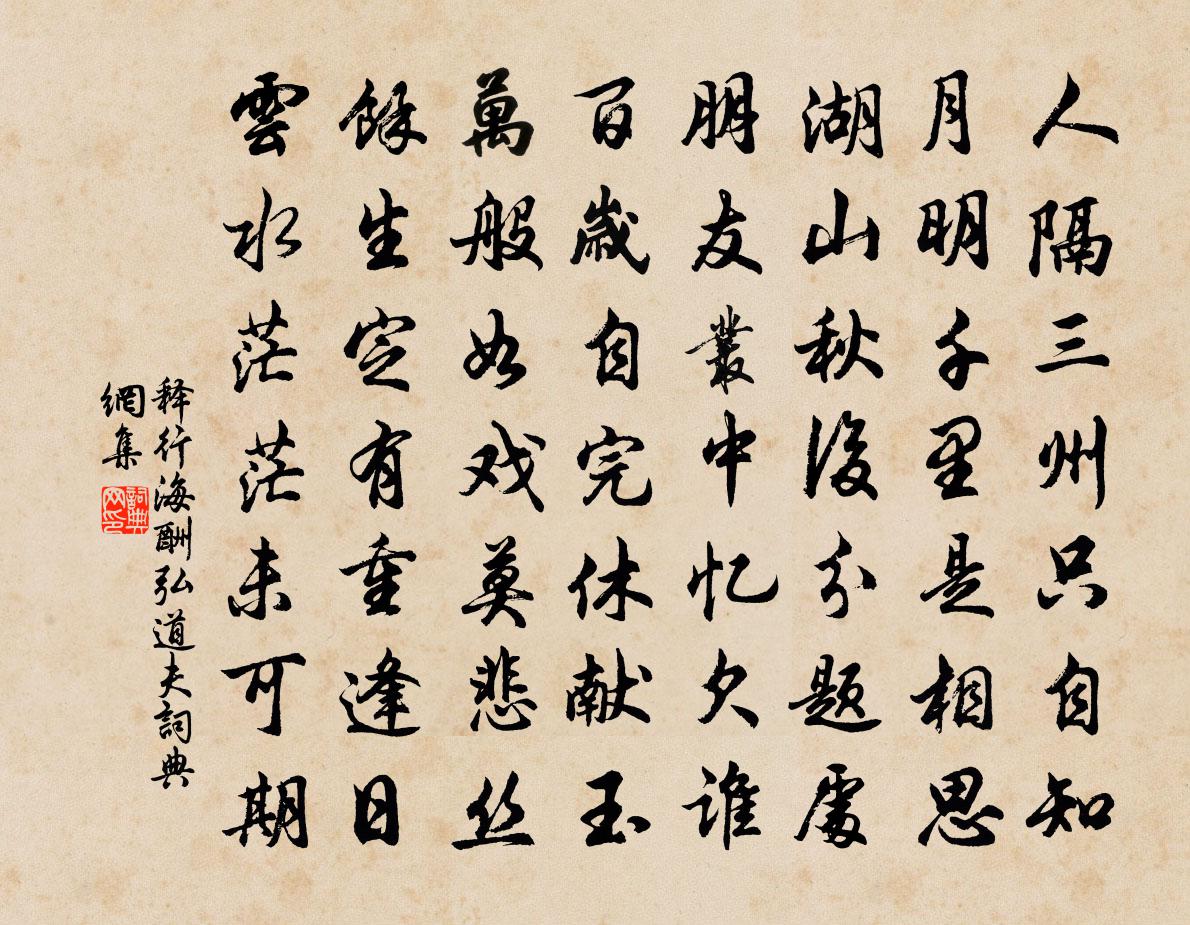 人隔三州只自知
月明千里是相思
湖山秋後分題處
朋友叢中忆欠谁
百歲自完休献玉
萬般如戏莫悲丝
餘生定有重逢日
雲水茫茫未可期
释行海酬弘道夫詞典
網集
詞典
网印